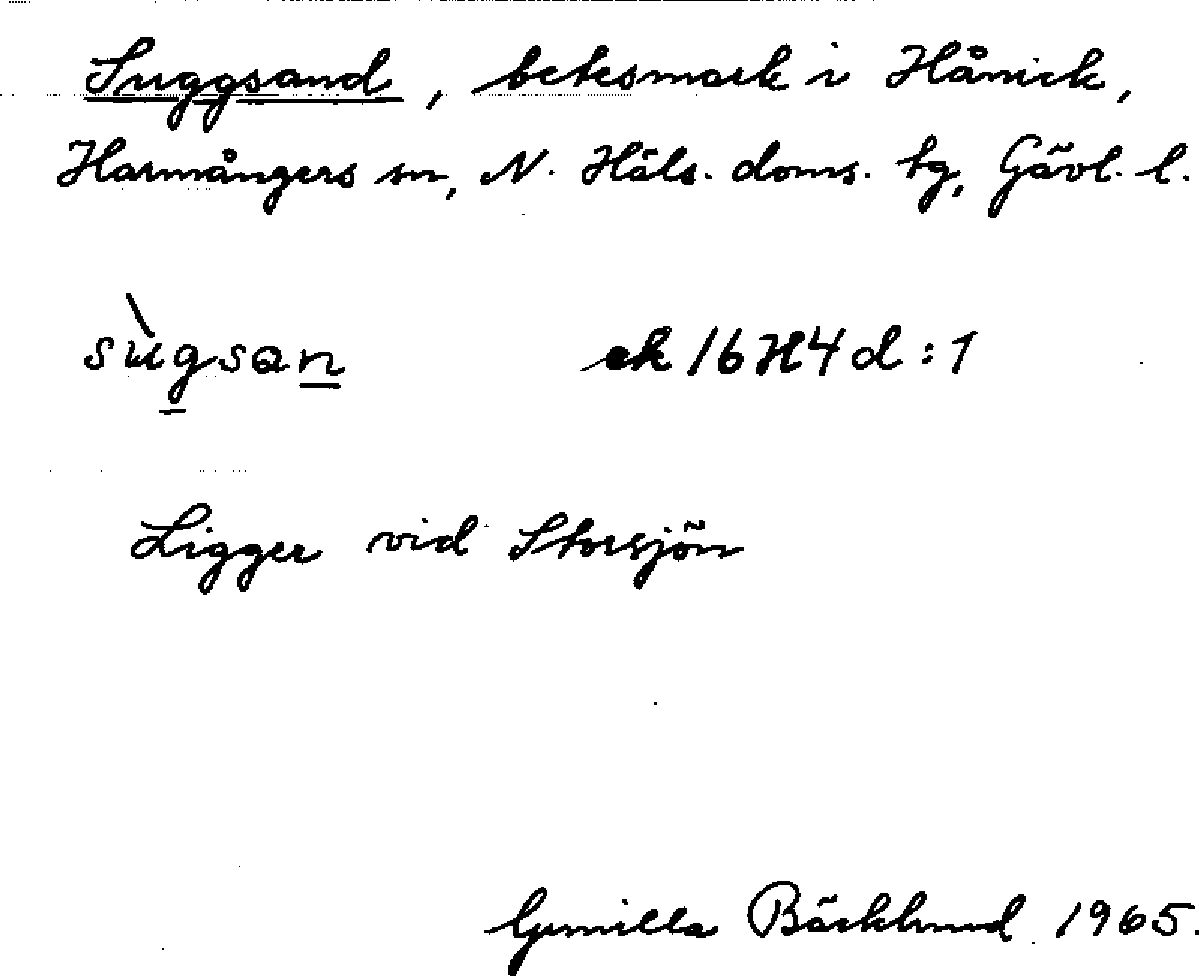 Suggsand, betesmark i Hånick,
Harmångers sn, N. Häls. doms. tg, Gävl. l.
sùgsan ek 16H4d:1
Ligger vid Storsjön
Gunilla Bäcklund 1965.